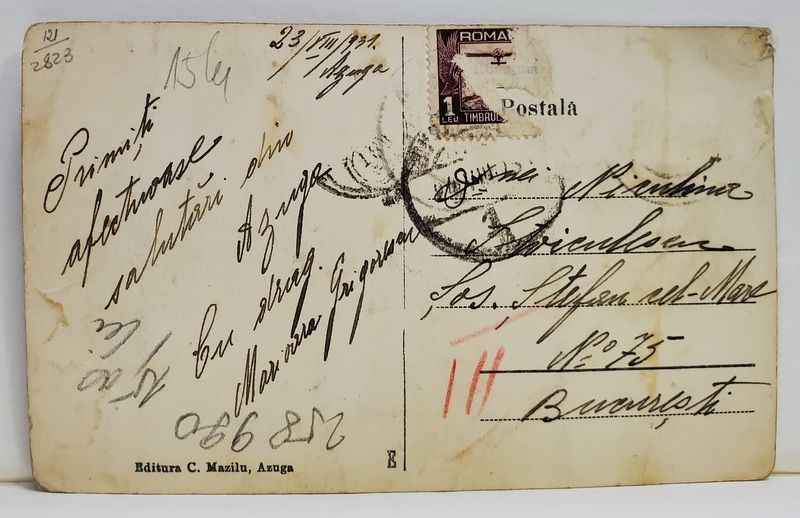 121
2823
15 lei
23/VIII/931.
Azuga
Primiți
afectuoase
salutări din
Azuga
Cu drag.
Marioara Grigorescu
15 lei
258990
Editura C. Mazilu, Azuga
E
ROMA
1
LEU TIMBRUL
Postală
1
Niculina
Șos. Ștefan cel-Mare
No 75
București
III